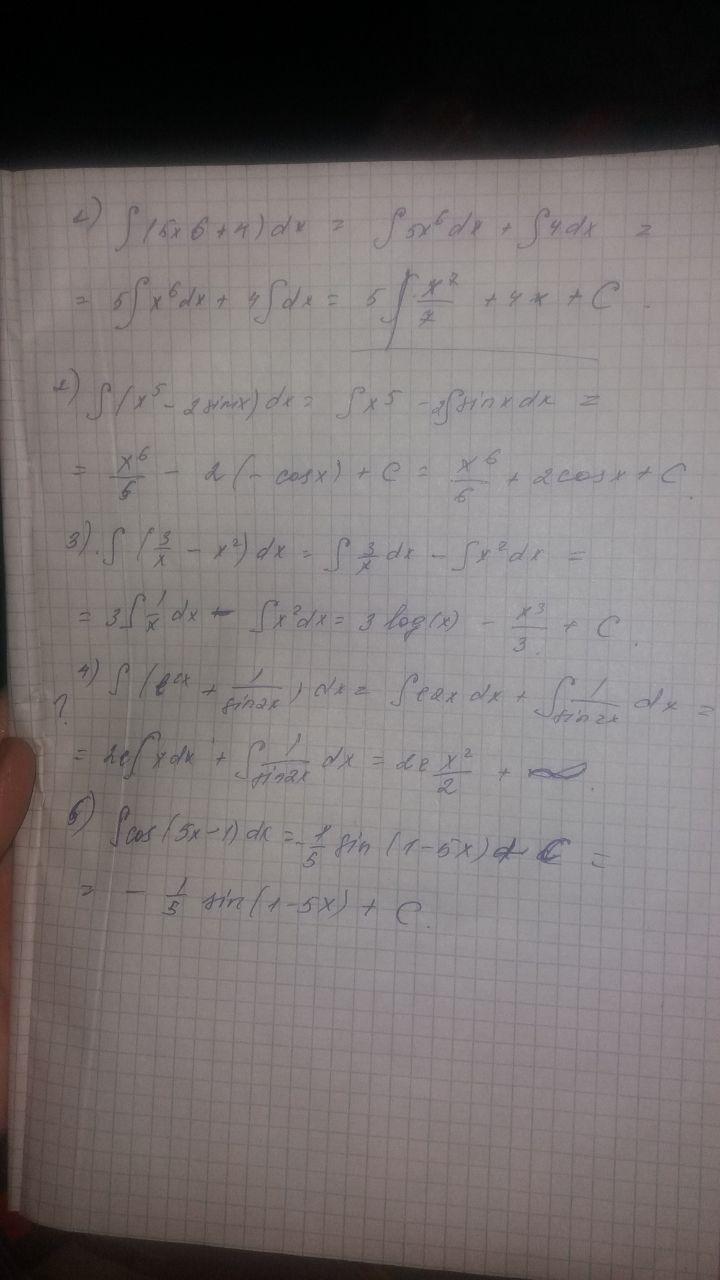 1) ∫(5x6+4)dx = ∫5x⁶dx + ∫4dx =
= 5∫x⁶dx + 4∫dx = 5 x⁷/7 + 4x + C.
2) ∫(x⁵ - 2sinx)dx = ∫x⁵ - 2∫sinxdx =
= x⁶/6 - 2(-cosx) + C = x⁶/6 + 2cosx + C.
3). ∫(3/x - x²)dx = ∫3/x dx - ∫x²dx =
= 3∫1/x dx - ∫x²dx = 3log(x) - x³/3 + C.
4) ∫( + 1/sin2x) dx = ∫ dx + ∫1/sin2x dx =
?
= 2e∫xdx + ∫1/sin2x dx = 2e x²/2 +
5) ∫cos(5x-1)dx = -1/5 sin(1-5x) + C =
= - 1/5 sin(1-5x) + C.